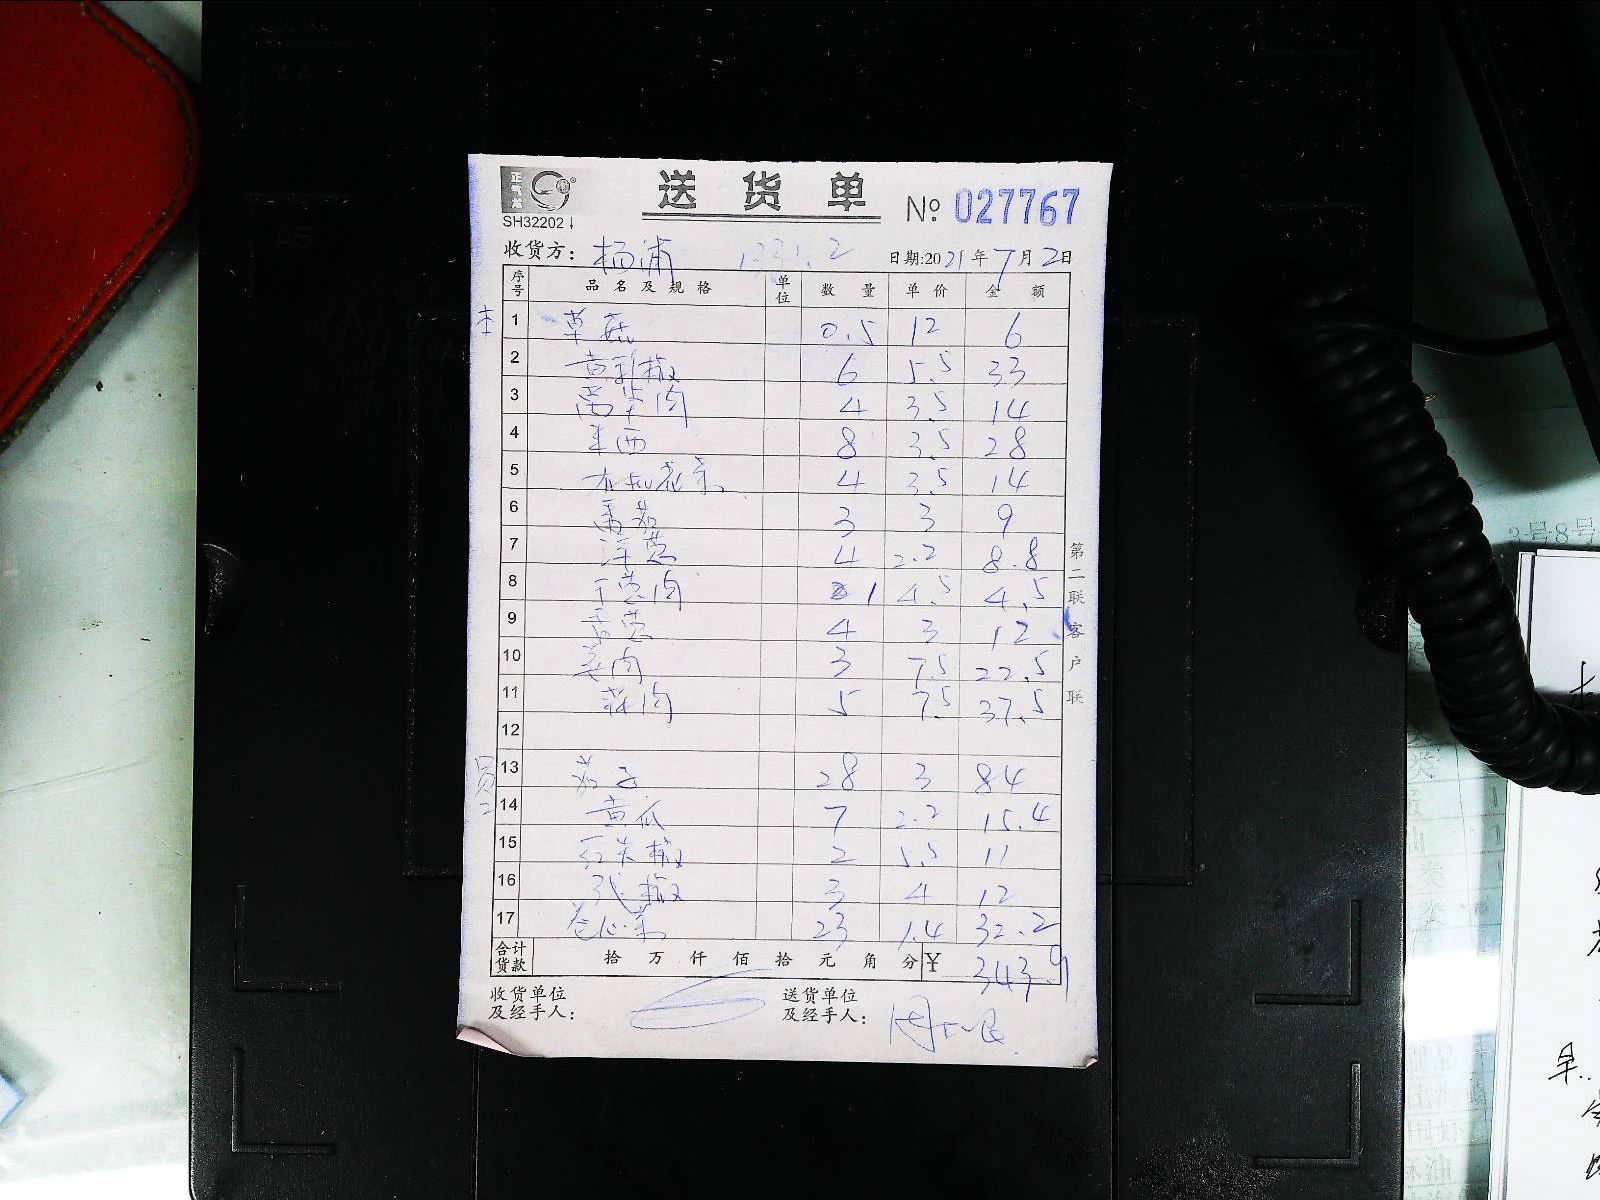 正气龙
送货单 № 027767
SH32202↓
收货方: 杨浦 1231.2 日期:2021年7月2日
序号 品名及规格 单位 数量 单价 金额
1 草菇 0.5 12 6
2 黄彩椒 6 5.5 33
3 莴笋肉 4 3.5 14
4 生西 8 3.5 28
5 有机花菜 4 3.5 14
6 番茄 3 3 9
7 洋葱 4 2.2 8.8
8 1 4.5 4.5
9 香葱 4 3 12
10 姜肉 3 7.5 22.5
11 蒜肉 5 7.5 37.5
12
13 茄子 28 3 84
14 黄瓜 7 2.2 15.4
15 红尖椒 2 5.5 11
16 椒 3 4 12
17 卷心菜 23 1.4 32.2
合计货款 拾 万 仟 佰 拾 元 角 分 ¥ 343.9
收货单位及经手人:
送货单位及经手人: 周
第二联 客户联